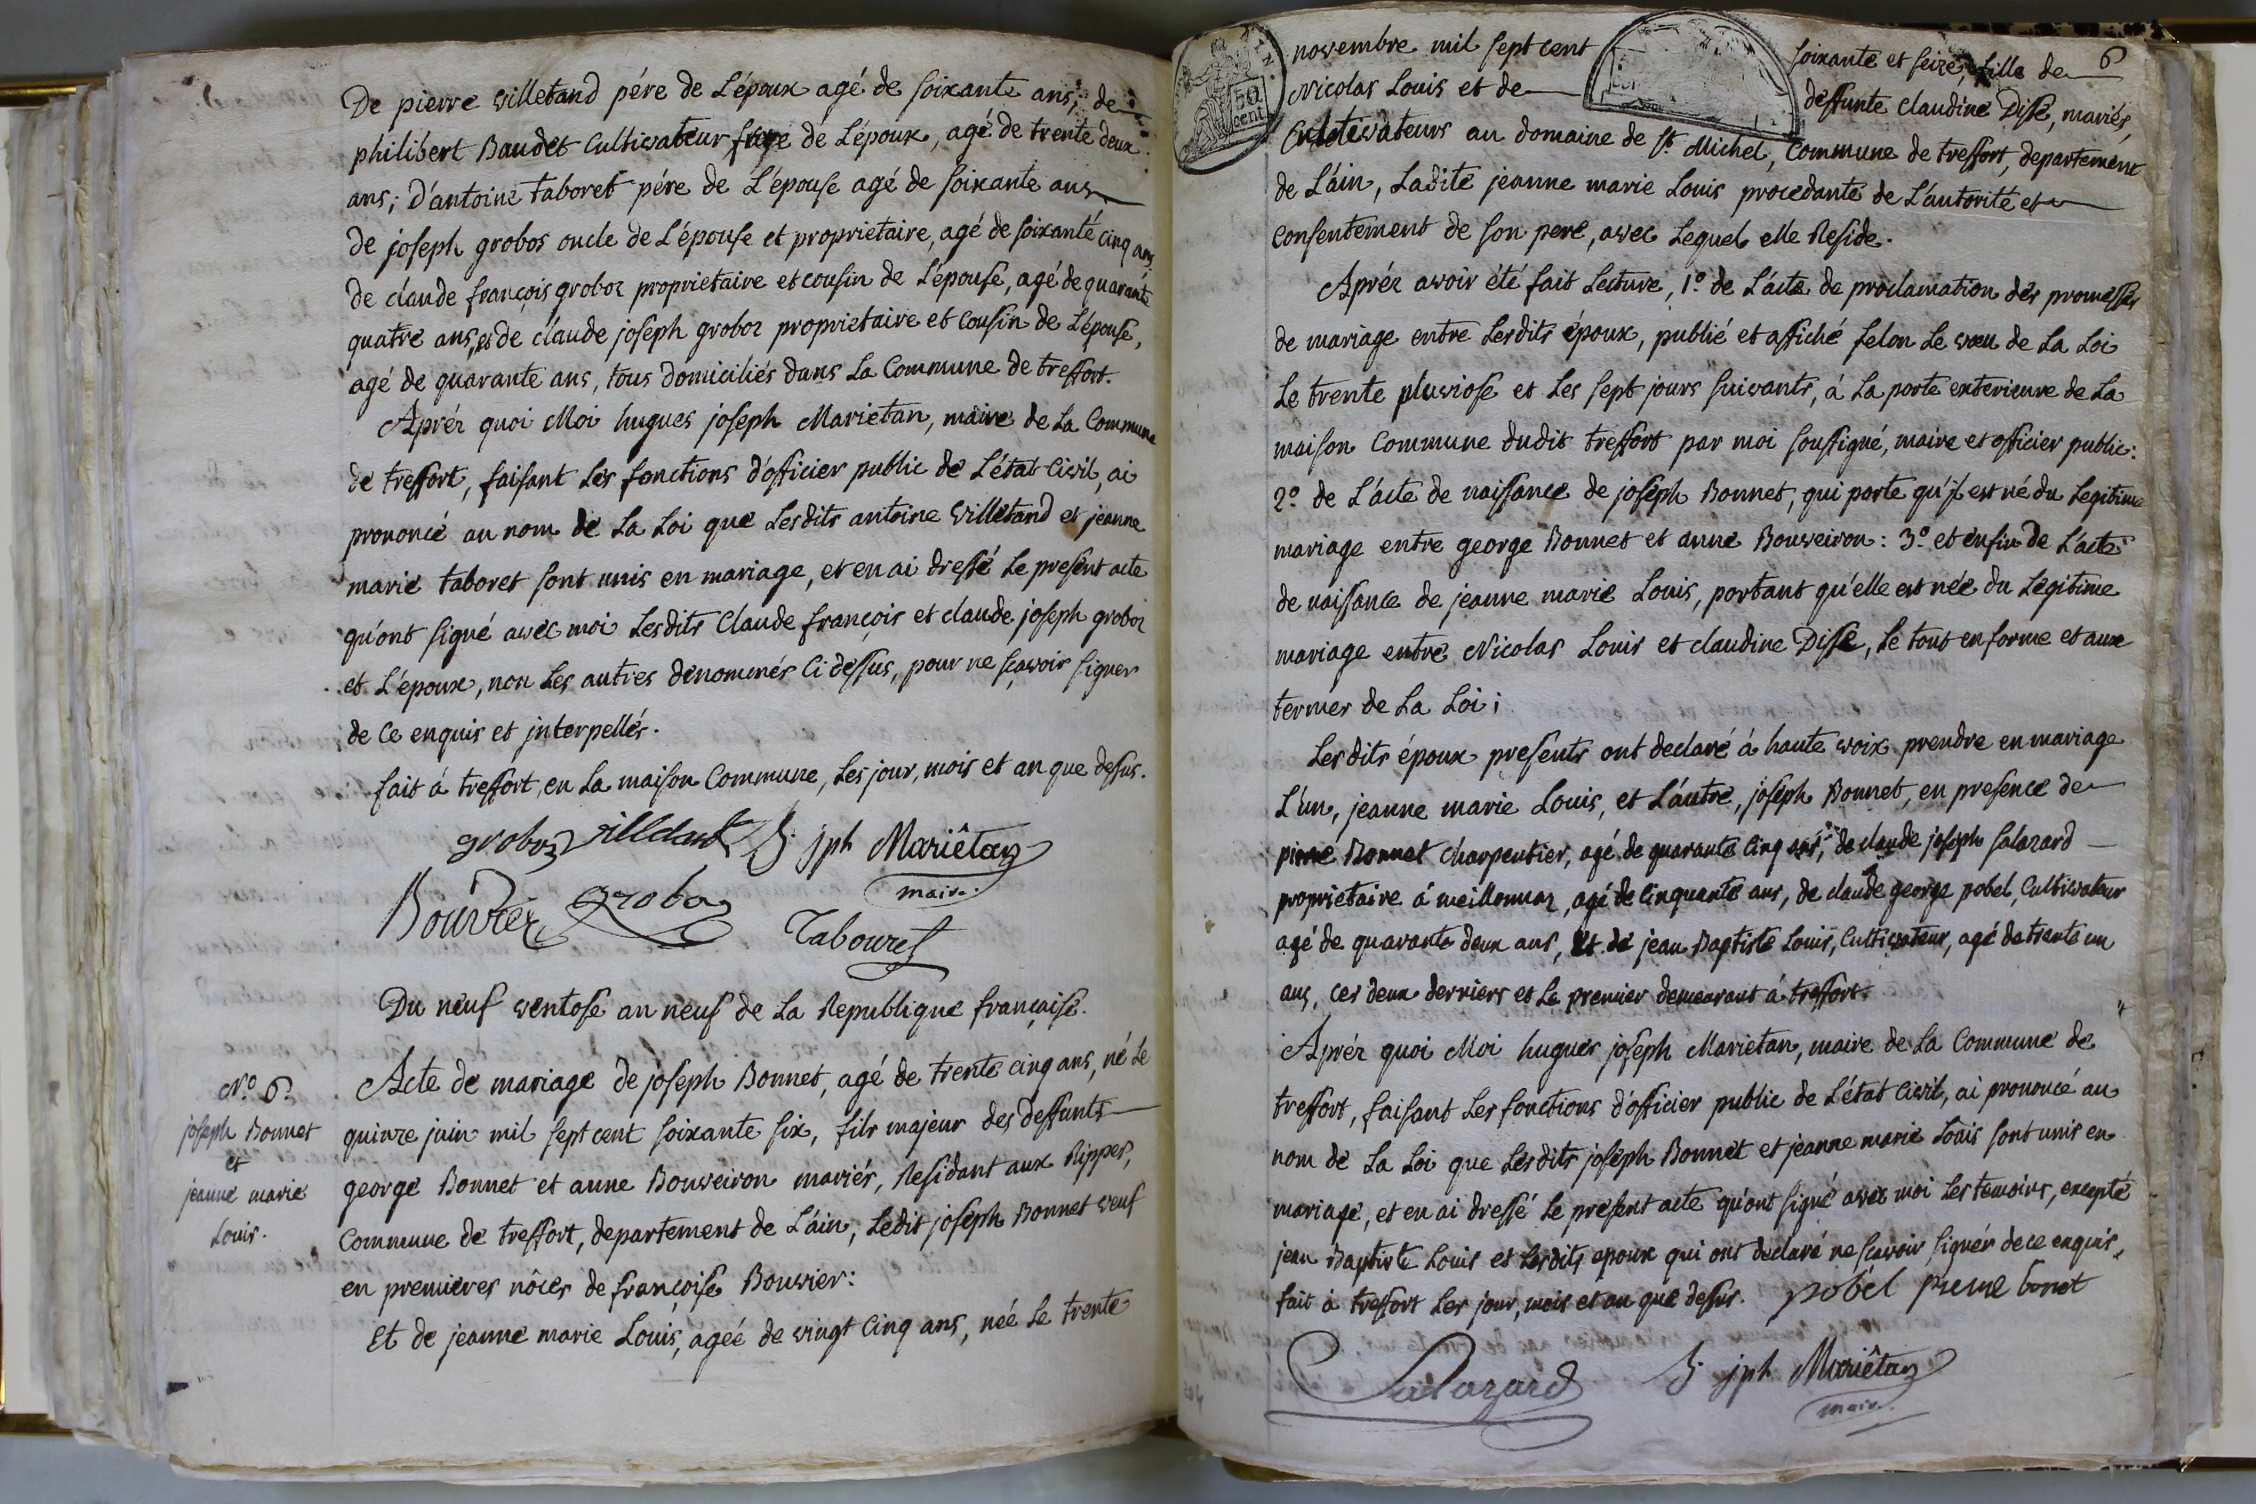 De pierre willetand pére de L'époux agé de soixante ans, de
philibert Baudet Cultivateur frere de L'époux, agé de trente deux
ans; D'antoine taboret pére de L'épouse agé de soixante ans
de joseph grobos oncle de L'épouse et proprietaire, agé de soixante cinq ans.
de claude françois groboz proprietaire et cousin de L'épouse, agé de quarante
quatre ans, et de claude joseph groboz proprietaire et Cousin de L'épouse,
agé de quarante ans, tous domiciliés dans La Commune de treffort.
Apréz quoi Moi hugues joseph Marietan, maire de La Commune
de treffort, faisant Les fonctions d'officier public de L'état Civil, ai
prononcé au nom de La Loi que Lesdits antoine Willetand et jeanne
marie taboret sont unis en mariage, et en ai dressé Le present acte
qu'ont signé avec moi Lesdits Claude françois et claude joseph groboz
et L'époux, non Les autres denommés Ci dessus, pour ne sçavoir signer
de Ce enquis et jnterpellés.
fait á treffort, en La maison Commune, Les jour, mois et an que dessus.
groboz villetand h. jph Mariêtan
maire.
Bouvier groboz
Tabouret
Du neuf ventose an neuf de La Republique française.
N.º 6.
joseph Bonnet
et
jeanne marie
Louis.
Acte de mariage de joseph Bonnet, agé de trente cinq ans, né Le
quinze juin mil sept cent soixante six, fils majeur des deffunts
george Bonnet et anne Bouveiron mariés, Residant aux Rippes,
Commune de treffort, departement de L'ain; Ledit joseph Bonnet veuf
en premieres nôces de françoise Bouvier:
Et de jeanne marie Louis, ageé de vingt Cinq ans, née Le trente
6
50
cent
novembre mil sept cent soixante et seize, fille de
Nicolas Louis et de deffunte Claudine Disse, mariés,
Cultivateurs au domaine de St. Michel, Commune de treffort, departement
de L'ain, Ladite jeanne marie Louis procedante de L'autorité et
Consentement de son pere, avec Lequel elle Reside.
Apréz avoir été fait Lecture, 1.º de L'acte de proclamation des promesses
de mariage entre Lesdits époux, publié et affiché selon Le vœu de La Loi
Le trente pluviose et Les sept jours suivants, á La porte exterieure de La
maison Commune dudit treffort par moi soussigné, maire et officier public:
2.º de L'acte de naissance de joseph Bonnet, qui porte qu'jl est né du Legitime
mariage entre george Bonnet et anne Bouveiron: 3.º et enfin de L'acte
de naissance de jeanne marie Louis, portant qu'elle est née du Legitime
mariage entre Nicolas Louis et claudine Disse, Le tout en forme et aux
termes de La Loi;
Lesdits époux presents ont declaré á haute voix prendre en mariage
L'un, jeanne marie Louis, et L'autre, joseph Bonnet, en presence de
pierre Bonnet charpentier, agé de quarante Cinq ans, de claude joseph salazard
proprietaire á meillonnaz, agé de Cinquante ans, de claude george pobel, Cultivateur
agé de quarante deux ans, et de jean Baptiste Louis, Cultivateur, agé de trente un
ans, Ces deux derniers et Le premier demeurant á treffort.
Apréz quoi Moi hugues joseph Marietan, maire de La Commune de
treffort, faisant Les fonctions d'officier public de L'état Civil, ai prononcé au
nom de La Loi que Lesdits joseph Bonnet et jeanne marie Louis sont unis en
mariage, et en ai dressé Le present acte qu'ont signé avec moi Les temoins, excepté
jean Baptiste Louis et Lesdits epoux qui ont declaré ne sçavoir signer de ce enquis,
fait á treffort Les jour, mois et an que dessus. pobel pierre bonet
Salazard h. jph Mariêtan
maire.